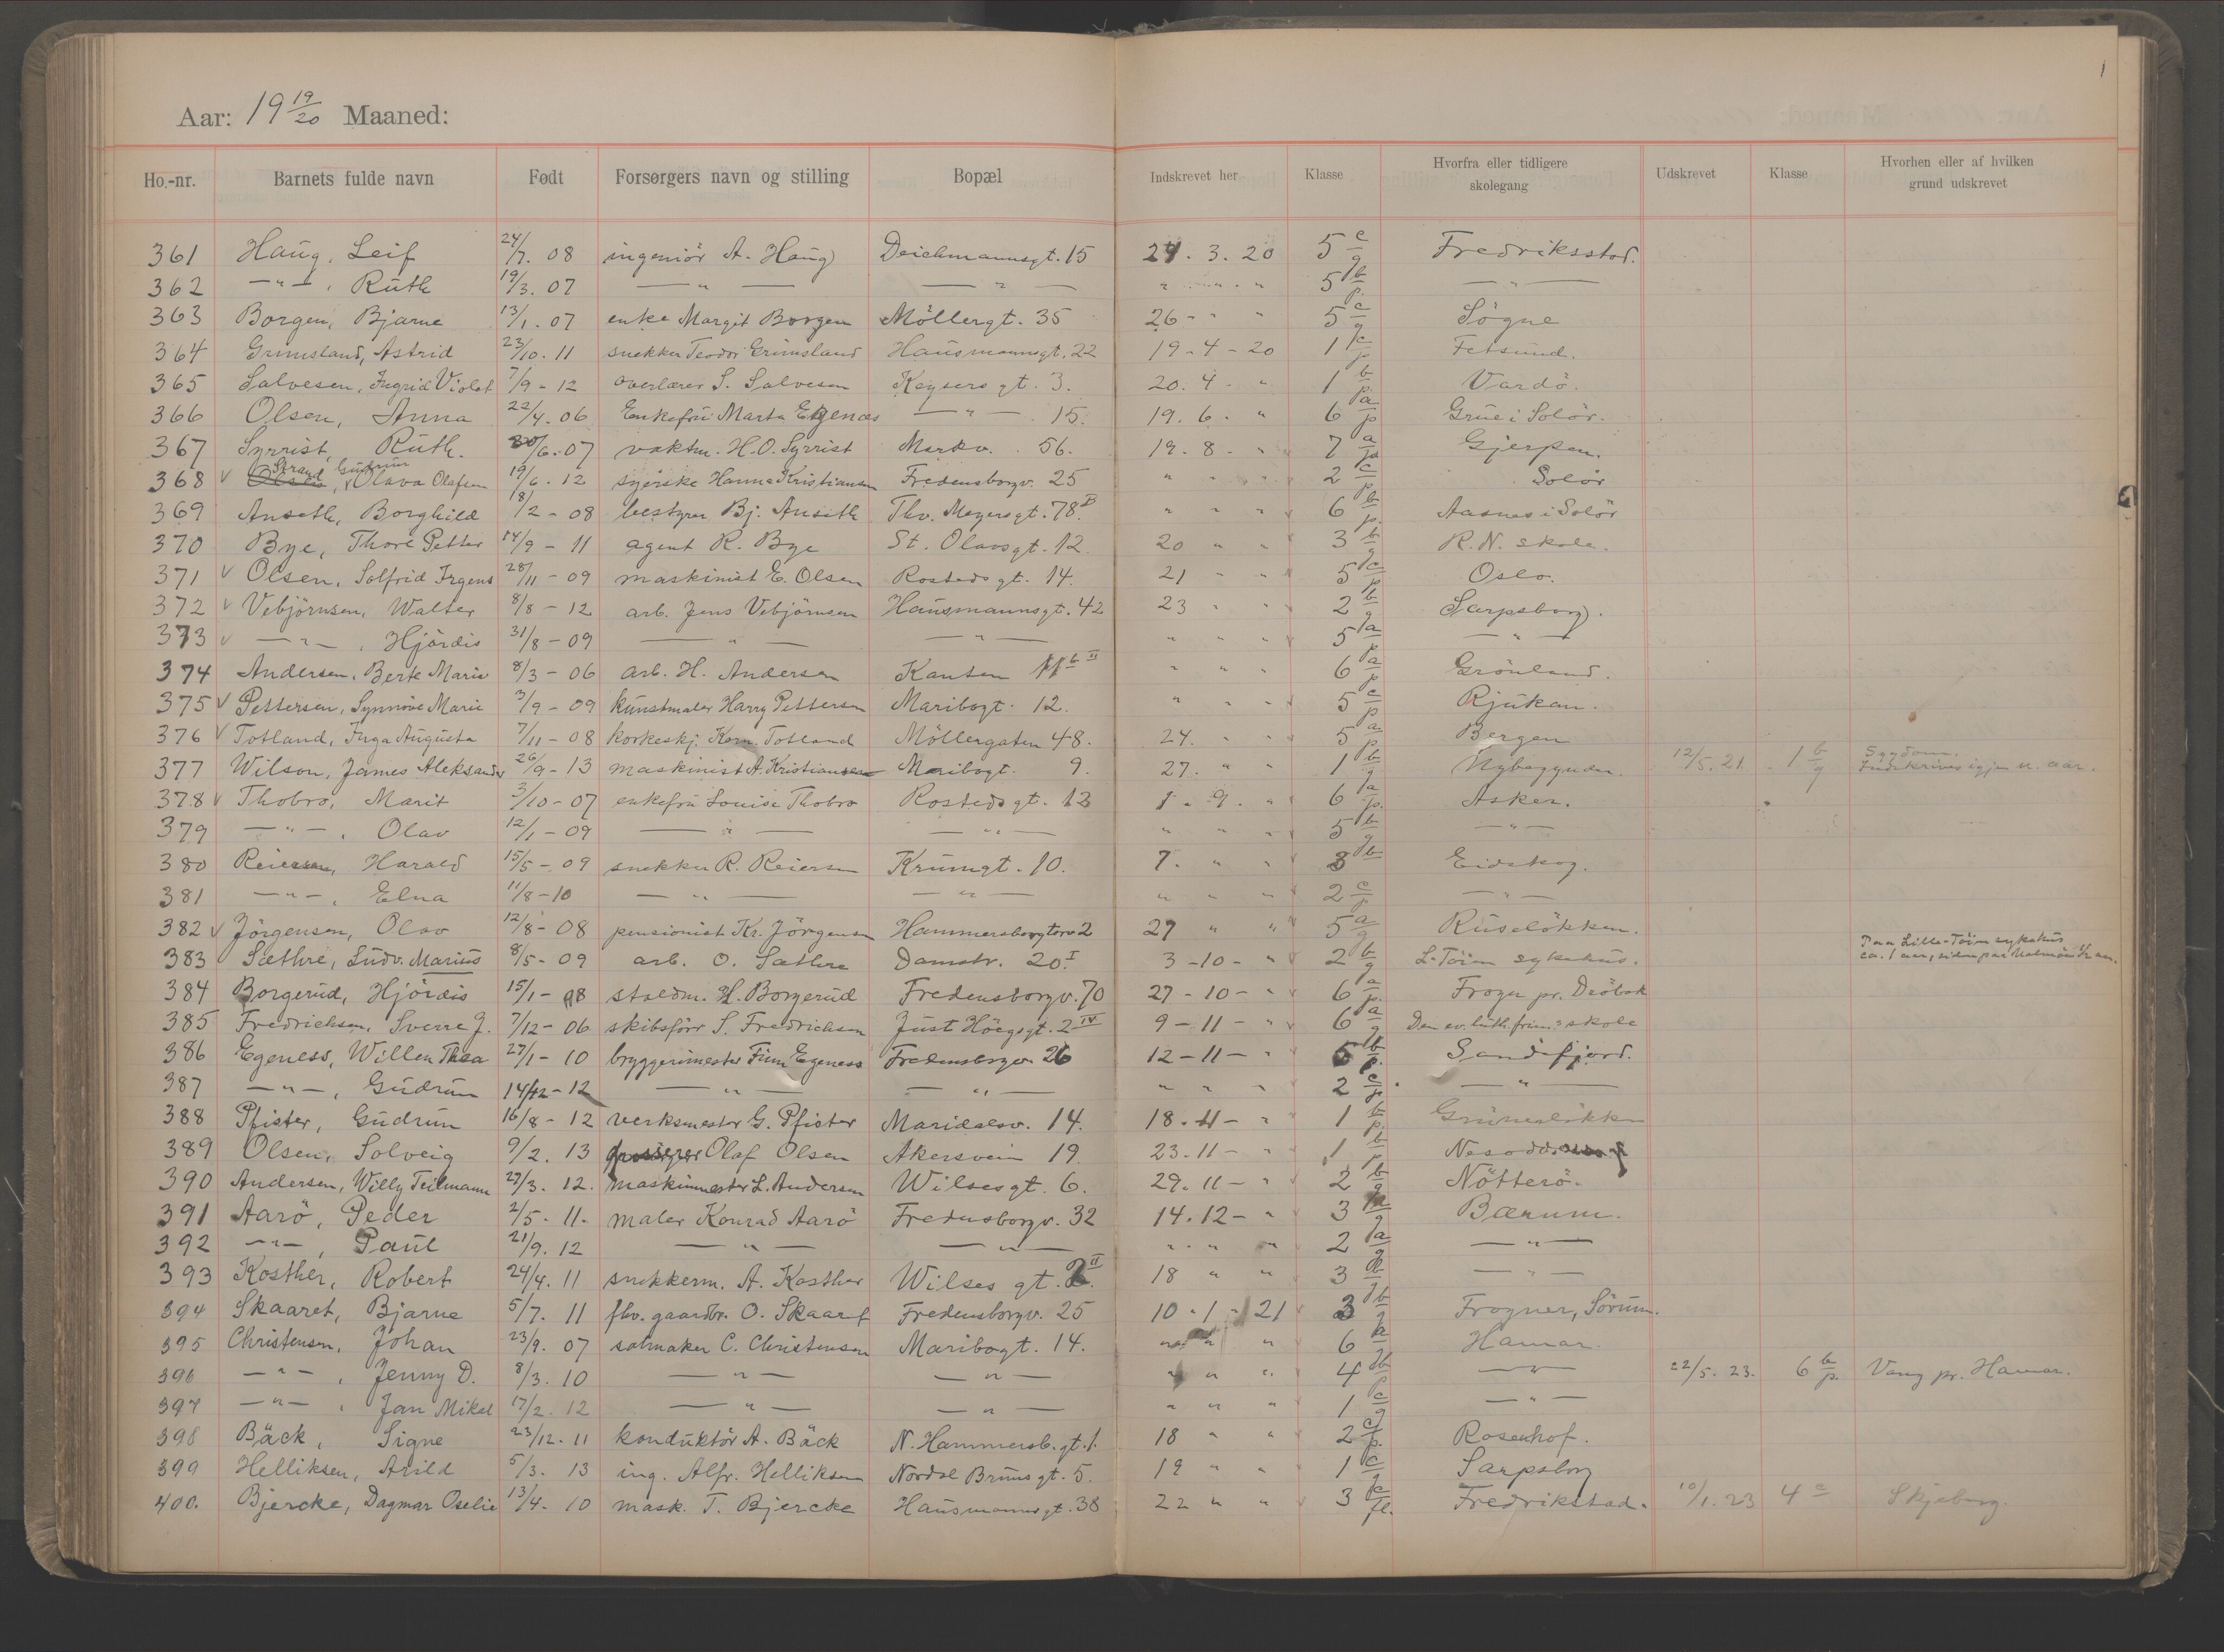 Aar: 19 19/20 Maaned:
Ho.-nr. Barnets fulde navn Født Forsørgers navn og stilling Bopæl Indskrevet her Klasse Hvorfra eller tidligere skolegang Udskrevet Klasse Hvorhen eller af hvilken grund udskrevet
361 Haug, Leif 24/7. 08 ingeniör A. Haug Deichmannsgt. 15 24. 3. 20 5 c/g Fredriksstad.
362 —"— , Ruth 19/3. 07 —"— —"— " " " 5 b/p. —"—
363 Borgen, Bjarne 13/1. 07 enke Margit Borgen Möllergt. 35 26 - " " 5 c/g Sögne
364 Grimsland, Astrid 23/10. 11 snekker Teodor Grimsland Hausmannsgt. 22 19 - 4 - 20 1 c/p Fetsund.
365 Salvesen, Ingrid Violet 7/9 - 12 overlærer S. Salvesen Keysers gt. 3. 20. 4 - " 1 b/p. Vardö.
366 Olsen, Anna 22/4. 06 Enkefru Marta Egenæs —"— 15. 19. 6. " 6 a/p Grue i Solör.
367 Syrrist, Ruth. 30/6. 07 vaktm. H. O. Syrrist Markv. 56. 19. 8. " 7 a/p Gjerpen.
368 v Strand Gudrun Olsen, Olava Olafsen 19/6. 12 syerske Hanna Kristiansen Fredensborgv. 25 " " " 2 c/p Solör
369 Anseth, Borghild 18/2 - 08 bestyrer Bj. Anseth Thv. Meyersgt. 78 B " " " 6 b/p. Aasnes i Solör
370 Bye, Thore Petter 14/9 - 11 agent R. Bye St. Olavsgt. 12. 20 " " 3 b/g R. N. skole.
371 v Olsen, Solfrid Irgens 28/11 - 09 maskinist E. Olsen Rosteds gt. 14. 21 " " 5 c/p Oslo.
372 v Vebjörnsen, Walter 8/8 - 12 arb. Jens Vebjörnsen Hausmannsgt. 42 23 " " 2 b/g Sarpsborg.
373 v —"— , Hjördis 31/8 - 09 —"— —"— " " " 5 a/p —"—
374 Andersen, Berte Marie 8/3 - 06 arb. H. Andersen Kanten 11 b II " " " 6 a/p Grönland.
375 v Pettersen, Synnöve Marie 3/9 - 09 kunstmaler Harry Pettersen Maribogt. 12. " " " 5 c/p Rjukan.
376 v Totland, Inga Augusta 7/11 - 08 korkeskj. Korn. Totland Möllergaten 48. 24. " " 5 a/p. Bergen
377 Wilson, James Aleksander 26/9 - 13 maskinist A. Kristiansen Maribogt. 9. 27. " " 1 b/g Nybegynder. 12/5. 21. 1 b/g Sygdom. Indskrives igjen n. aar.
378 v Thobro, Marit 3/10 - 07 enkefru Louise Thobro Rosteds gt. 13 1. 9. " 6 a/p. Asker.
379 —"— , Olav 12/1 - 09 —"— —"— " " " 5 b/g —"—
380 Reiersen, Harald 15/5 - 09 snekker R. Reiersen Krumgt. 10. 7. " " 3 b Eidskog.
381 —"— , Elna 11/8 - 10 —"— —"— " " " 2 c/p —"—
382 v Jörgensen, Olav 12/8 - 08 pensionist Kr. Jörgensen Hammersborgtorv 2 27 " " 5 a/g Ruselökken.
383 Sæthre, Ludv. Marius 8/5 - 09 arb. O. Sæthre Damstr. 20. I 3 - 10 - " 2 b/g L. Töien sykehus. Paa Lille-Töien sykehus ca. 1 aar, siden paa Malmöen 1/2 aar.
384 Borgerud, Hjördis 15/1 - 08 staldm. H. Borgerud Fredensborgv. 70 27 - 10 - " 6 a/p. Frogn pr. Dröbak
385 Fredrichsen, Sverre J. 7/12 - 06 skibsförer S. Fredrichsen Just Höegsgt. 2 IV 9 - 11 - " 6 a/g Den ev. luth. frim. skole
386 Egeness, Willen Thea 27/1 - 10 bryggerimester Finn Egeness Fredensborgv. 26 12 - 11 - " 5 b/p. Sandefjord.
387 —"— , Gudrun 14/12 - 12 —"— —"— " " " 2 c/p. —"—
388 Pfister, Gudrun 16/8 - 12 verksmester G. Pfister Maridalsv. 14. 18. 11 - " 1 b/p. Grünerlökka
389 Olsen, Solveig 9/2. 13 grosserer Olaf Olsen Akersvein 19. 23. 11 - " 1 b/p Nesodd
390 Andersen, Willy Teilmann 27/3. 12. maskinmester L. Andersen Wilsesgt. 6. 29. 11 - " 2 b/g Nötterö.
391 Aarö, Peder 2/5. 11. maler Konrad Aarö Fredensborgv. 32 14. 12 - " 3 /g Bærum.
392 —"— , Paul 21/9. 12 —"— —"— " " " 2 a/g —"—
393 Kosther, Robert 24/4. 11 snekkerm. A. Kosther Wilses gt. 2. II 18 " " 3 b/g —"—
394 Skaaret, Bjarne 5/7. 11 fhv. gaardbr. O. Skaaret Fredensborgv. 25 10 - 1 - 21 3 b/g Frogner, Sörum.
395 Christensen, Johan 23/9. 07 salmaker C. Christensen Maribogt. 14. " " " 6 a/g Hamar.
396 —"— , Jenny D. 8/3. 10 —"— —"— " " " 4 b/p —"— 22/5. 23. 6 b/p. Vang pr. Hamar.
397 —"— , Jan Mikal 17/2. 12 —"— —"— " " " 1 c/g —"—
398 Bäck, Signe 23/12. 11 konduktör A. Bäck N. Hammersb. gt. 1. 18 " " 2 c/p. Rosenhof.
399 Helliksen, Arild 5/3. 13 ing. Alfr. Helliksen Nordal Bruns gt. 5. 19 " " 1 c/g Sarpsborg
400. Bjercke, Dagmar Oselie 13/4. 10 mask. T. Bjercke Hausmannsgt. 38 22 " " 3 c/fl. Fredrikstad. 10/1. 23 4 c Skjeberg.